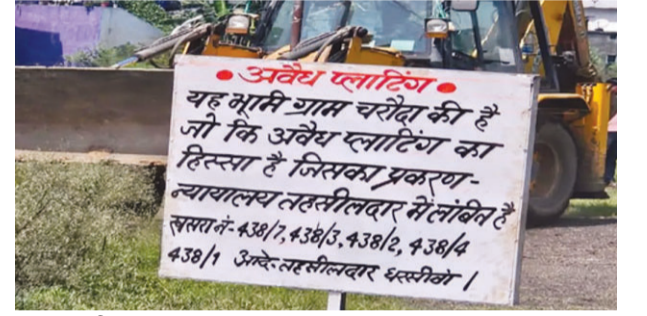 • अवैध प्लाटिंग •
यह भूमी ग्राम चरौदा की है
जो कि अवैध प्लाटिंग का
हिस्सा है जिसका प्रकरण-
न्यायालय तहसीलदार में लंबित है
खसरा नं-438/7, 438/3, 438/2, 438/4
438/1 आदे-तहसीलदार धरसीवा।